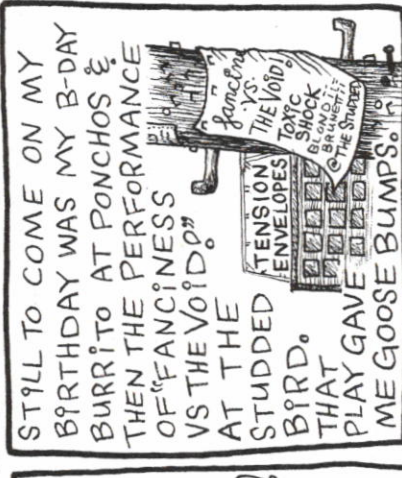 STILL TO COME ON MY
BIRTHDAY WAS MY B-DAY
BURRITO AT PONCHOS &
THEN THE PERFORMANCE
OF "FANCINESS
VS THE VOID"
AT THE
STUDDED
BIRD.
THAT
PLAY GAVE
ME GOOSE BUMPS.
fancin
VS.
THE VOID!
TOXIC
SHOCK
BLOND...
BRUNETTI=
@THE STUDDED
TENSION
ENVELOPES